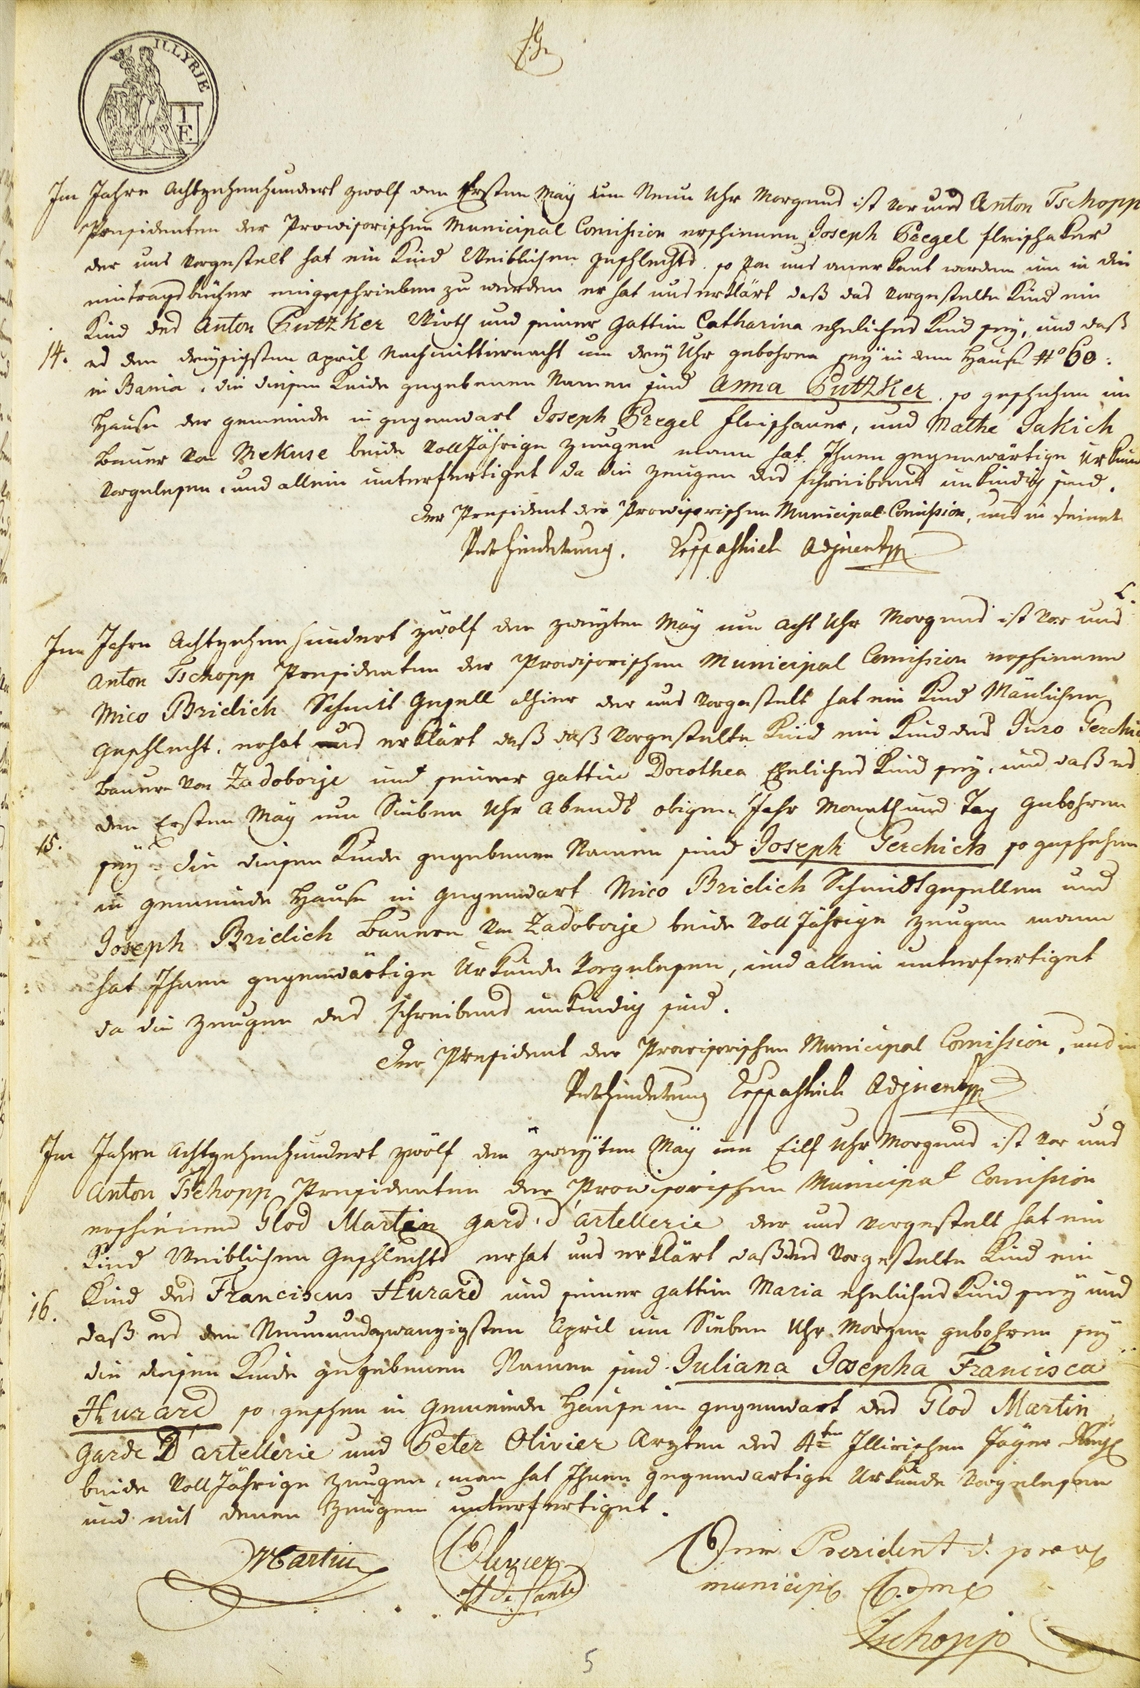 ILLYRIE
Im Jahre Achtzehenhundert zwolf den Ersten Maÿ um Neun Uhr Morgens ist vor uns Anton Tschopp
Presidenten der Provisorischen Municipal Comission erschienen Joseph Pregel fleischaker
der uns vorgestelt hat ein Kind Weiblichen geschlechts so von uns anerkant worden um in die
eintragsbücher eingeschrieben zu werden er hat uns erklärt daß das vorgestelte Kind ein
Kind des Anton Putzker Wirth und seiner Gattin Catharina eheliches Kind seÿ, und daß
14. es den dreÿsigsten April Nachmitternacht um dreÿ Uhr gebohren seÿ in dem Hause No 60.
in Bania. die diesem Kinde gegebenen Namen sind Anna Putzker so geschehen im
Hause der gemeinde in gegenwart Joseph Pregel fleischauer, und Mathe Jakich
Bauer von Mekuse beide Volljährige Zeugen mann hat Ihnen gegenwärtige Urkund
vorgelesen, und allein unterfertiget da die Zeugen des schreibens unkündig sind.
der President der Provisorischen Municipal Comission, und in seiner
Verhinderung. Adjunct
Im Jahre Achtzehenhundert zwölf den zweÿten Maÿ um acht Uhr Morgens ist vor uns
Anton Tschopp Presidenten der Provisorischen Municipal Comission erschienen
Mico Brielich Schmit Gesell alhier der uns vorgestelt hat ein Kind Mänlichen
geschlecht. er hat uns erklärt daß daß vorgestelte Kind ein Kind des Juro Gerchich
Bauern von Zadoborje und seiner Gattin Dorothea Eheliches Kind seÿ, und daß es
den Ersten Maÿ um Sieben Uhr Abends obigen Jahr Monath und Tag gebohren
15. seÿ die diesem Kinde gegebenen Namen sind Joseph Gerchich so geschehen
in gemeinde Hause in gegenwart Mico Brielich Schmidtgesellen und
Joseph Brielich Bauern von Zadoborje beide Volljährige Zeugen mann
hat Ihnen gegenwärtige Urkunde vorgelesen, und allein unterfertiget
da die Zeugen des schreibens unkündig sind.
der President der Provisorischen Municipal Comission, und in
Verhinderung Adjunct
Im Jahre Achtzehenhundert zwölf den zweÿten Maÿ um Eilf Uhr Morgens ist vor uns
Anton Tschopp Presidenten der Provisorischen Municipal Comission
erschienen Glod Martin gard d'artellerie der uns vorgestelt hat ein
Kind Weiblichen Geschlechts er hat uns erklärt daß das vorgestelte Kind ein
16. Kind des Franciscus Hurard und seiner Gattin Maria eheliches Kind seÿ und
daß es den Neunundzwanzigsten April um Sieben Uhr Morgen gebohren seÿ
die diesem Kinde gegebenen Namen sind Juliana Josepha Francisca
Hurard so geschen in Gemeinde Hause in gegenwart des Glod Martin
Garde D'artellerie und Peter Olivier Arzten des 4ten Illirischen Jäger
beide Volljährige Zeugen, man hat Ihnen gegenwartige Urkunde vorgelesen
und mit denen Zeugen unterfertiget.
Martin Olivier Der President d. prov
municip Come
Tschopp
5